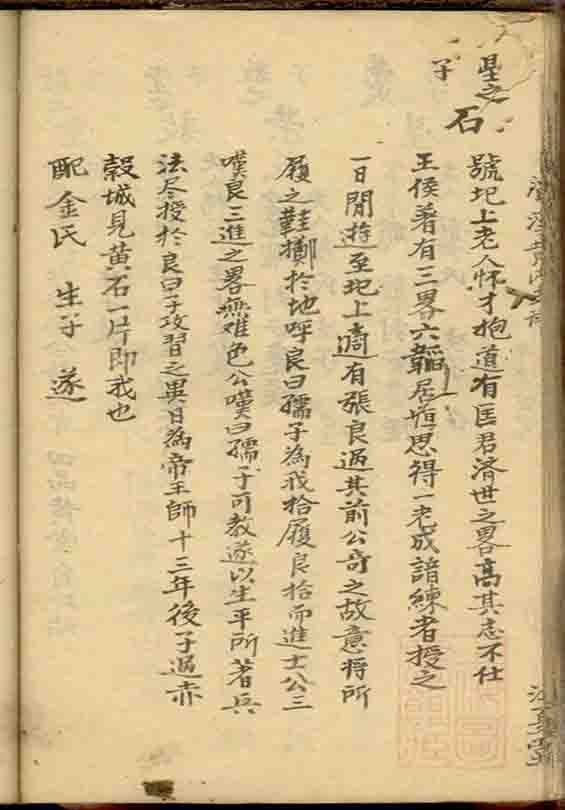 星之
子
石
號圯上老人怀才抱道有匡君済世之畧高其志不仕
王侯著有三畧六韜居恒思得一老成諳練者授之
一日閒遊至圯上適有張良過其前公奇之故意将所
履之鞋擲於地呼良曰孺子為我拾履良拾而進士公三
嘆良三進之畧無难色公嘆曰孺子可教遂以生平所著兵
法尽授於良曰子攻習之異日為帝王師十三年後子過赤
榖城見黄石一片即我也
配金氏 生子 遂